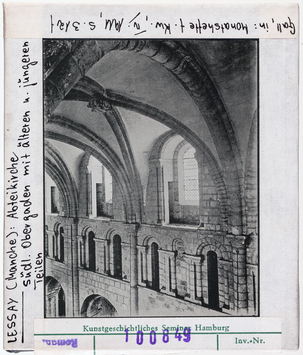 Gall, in: Monatshefte f. Kw, IV, 1911, S. 312 f
LESSAY (Manche): Abteikirche
südl. Obergaden mit älteren u. jüngeren
Teilen
Kunstgeschichtliches Seminar Hamburg
Roman.
100849
Inv.-Nr.